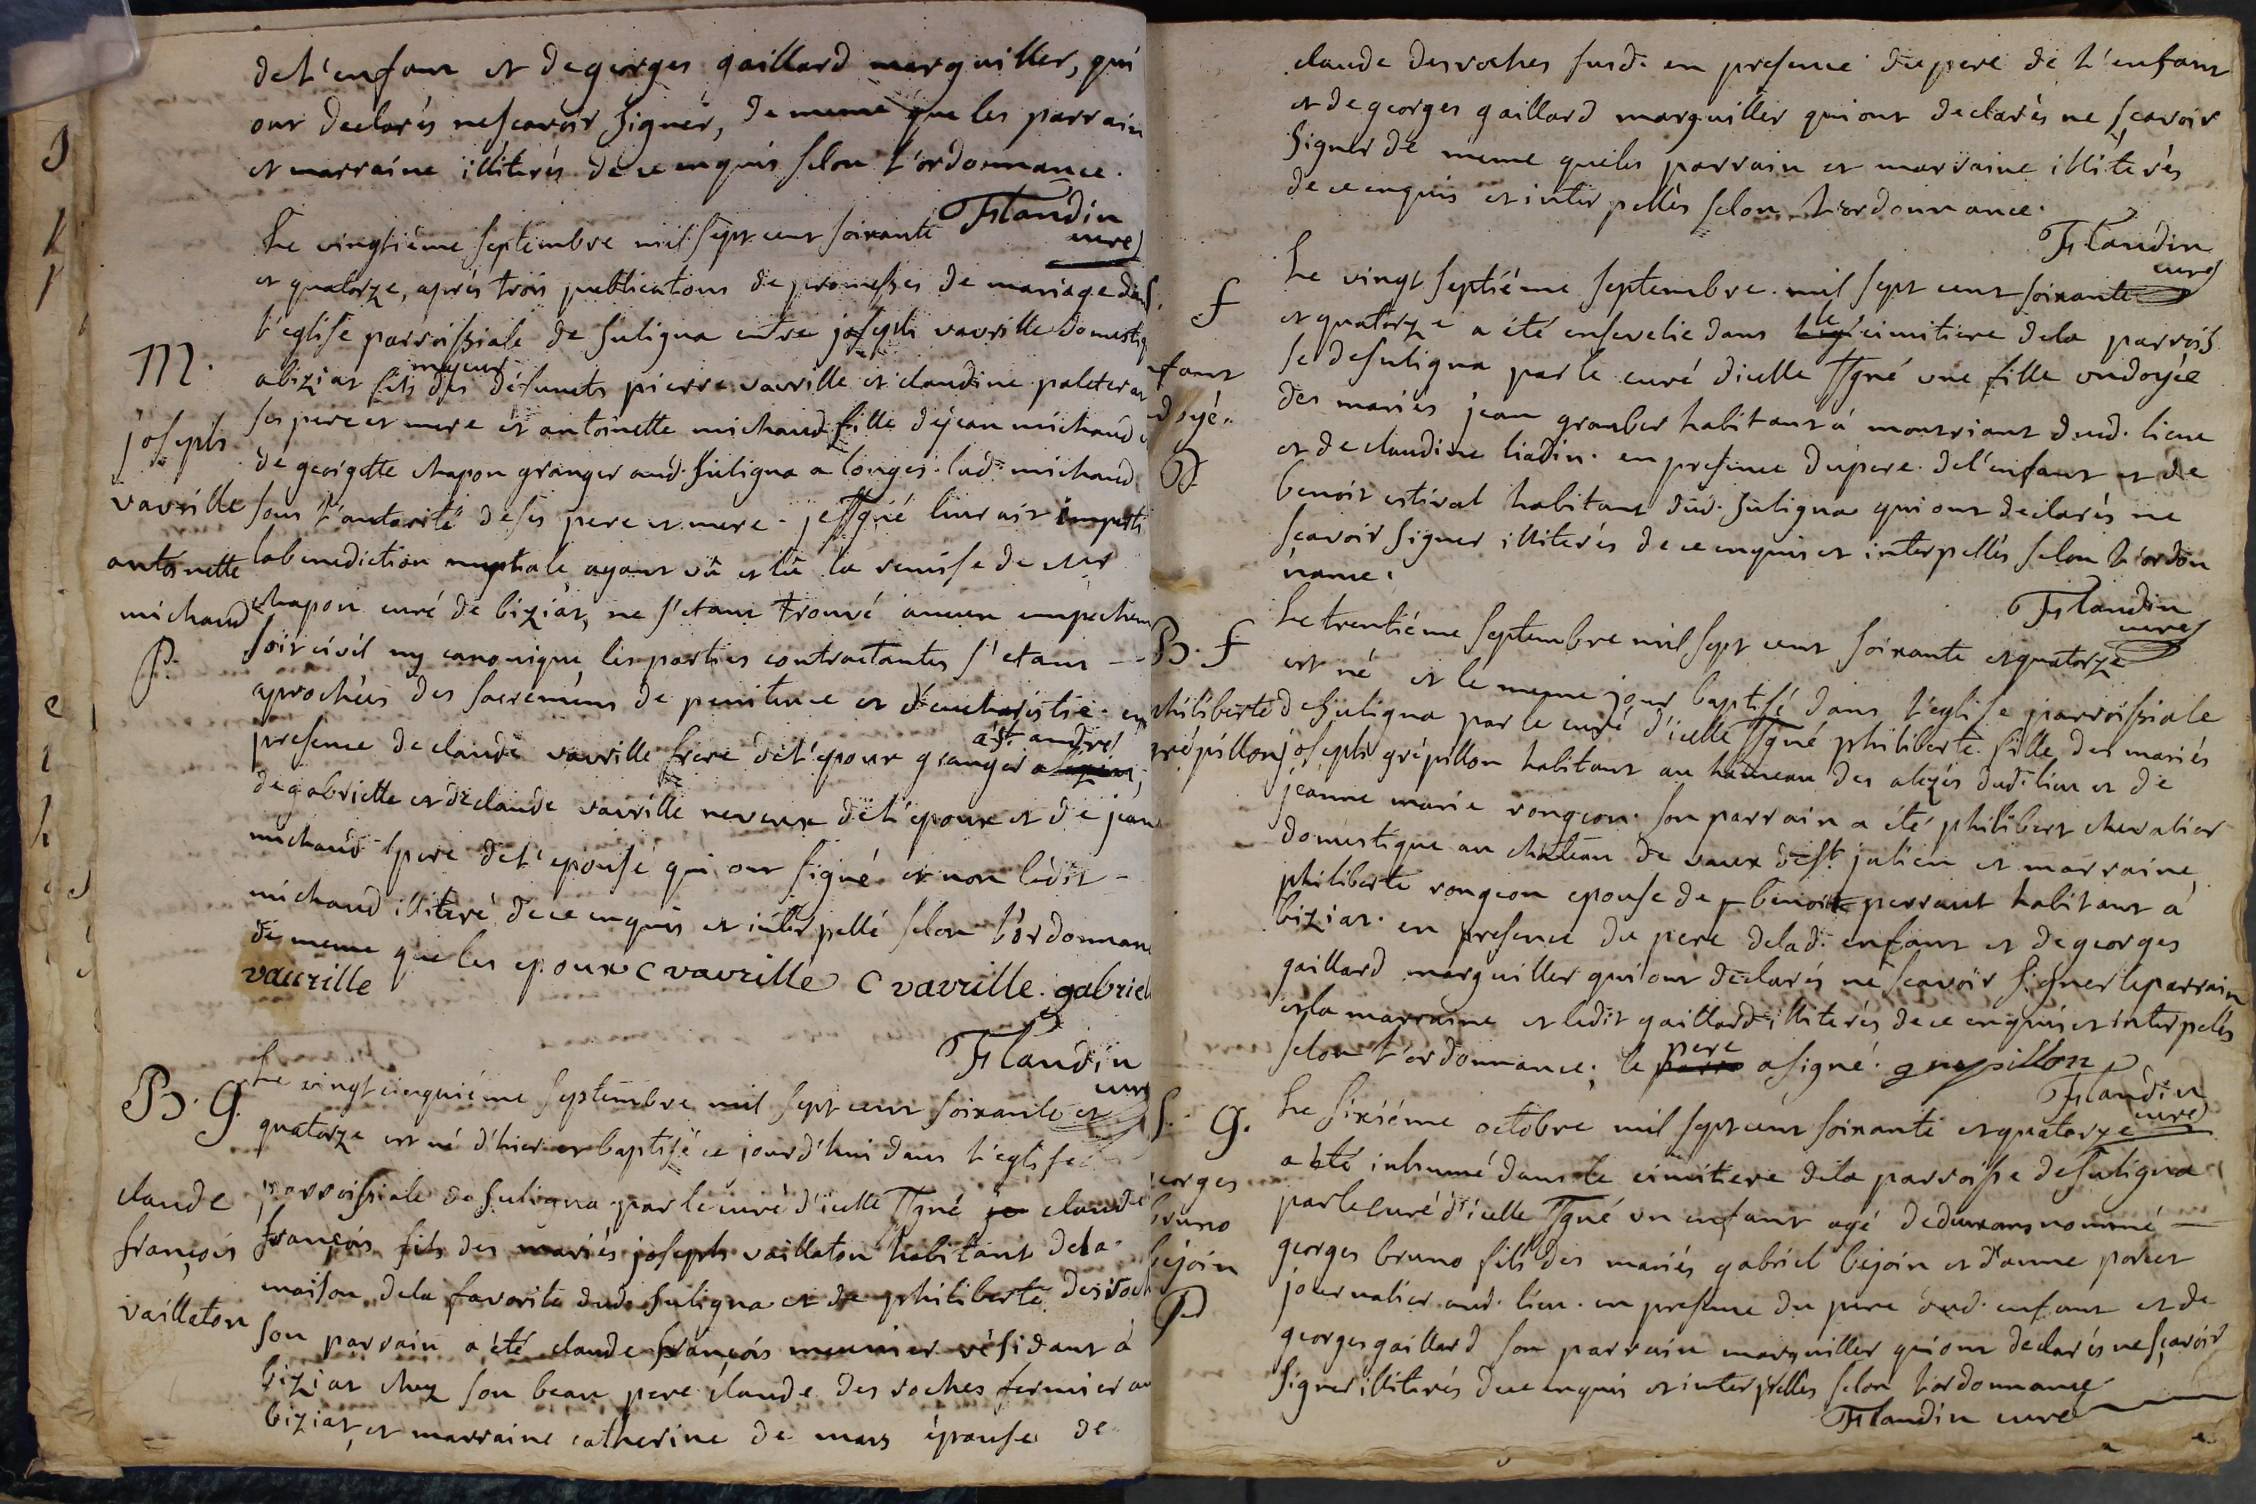 de l'enfant et de georges gaillard marguiller, qui
ont declarés ne scavoir signer, de meme que les parrain
et marraine illiterés de ce enquis selon l'ordonnance.
Flandin
curé
Le vingtiéme septembre mil sept cent soixante
et quatorze, aprés trois publications de promesses de mariage dans
l'eglise parroissiale de suligna entre joseph vavrille domestiq
majeur
a biziat fils des défuncts pierre vavrille et claudine
M.
joseph
vavrille
antoinette
michaud
P.
ses pere et mere et antoinette michaud fille de jean michaud
de georgette chapon granger aud. suligna a longes. lad. michaud
sous l'autorité de ses pere et mere. je ssgné leur ait imparti
la benediction nuptiale ayant vû et lû la remise de Mr
chapon curé de biziat, ne s'etant trouvé aucun empechem
soit civil ny canonique les parties contractantes s'etant —
aprochées des sacremens de penitence et d'eucharistie. en
a st. andré
presence de claude vavrille frere de l'epoux granger
de gabrielle et de claude vavrille neveux de l'epoux et de jean
michaud pere de l'epouse qui ont signé et non ledit —
michaud illiteré de ce enquis et interpellé selon l'ordonnan
de meme que les epoux C vavrille C vavrille. gabriel
vavrille
Flandin
curé
B. G.
claude
françois
vaillaton
Le vingt cinquiéme septembre mil sept cent soixante et
quatorze est né d'hier et baptisé ce jourd'hui dans l'eglise
parroissiale de suligna par le curé d'icelle ssgné je claude
françois fils des mariés joseph vaillaton habitant de la
maison de la favorite dud. suligna et de philiberte desroch
son parrain a été claude françois meunier résidant à
biziat chez son beau pere claude des roches fermier au
biziat, et marraine catherine de mars épouse de
claude desroches susd. en presence du pere de l'enfant
et de georges gaillard marguiller qui ont declarés ne sçavoir
signer de meme que les parrain et marraine illiterés
de ce enquis et interpellés selon l'ordonnance.
Flandin
curé
S. f
enfant
ondoyé.
P
Le vingt septiéme septembre mil sept cent soixante
et quatorze a été ensevelie dans le cimitiere de la parrois
se de suligna par le curé d'icelle ssgné une fille ondoyée
des mariés jean grauber habitant à montriant dud. lieu
et de claudine liadin. en presence du pere de l'enfant et de
benoit estival habitant dud. suligna qui ont declarés ne
sçavoir signer illiterés de ce enquis et interpellés selon l'ordon
nance.
Flandin
curé
B. f
philiberte
grépillon
Le trentiéme septembre mil sept cent soixante et quatorze
est né et le meme jour baptisé dans l'eglise parroissiale
de suligna par le curé d'icelle ssgné philiberte fille des mariés
joseph grépillon habitant au hameau des alezés dud. lieu et de
jeanne marie rongeon. son parrain a été philibert chevalier
domestique au château de vaux de st. julien et marraine,
philiberte rongeon epouse de benoit perraut habitant à
biziat. en presence du pere de lad. enfant et de georges
gaillard marguiller qui ont déclarés ne scavoir signer le parrain
et la marraine et ledit gaillard illiterés de ce enquis et interpelés
pere
selon l'ordonnance; le a signé. grepillon
Flandin
curé
S. G.
georges
bruno
bejoin
P
Le sixiéme octobre mil sept cent soixante et quatorze
a été inhumé dans le cimitiere de la parroisse de suligna
par le curé d'icelle ssgné un enfant agé de deux ans nommé —
georges bruno fils des mariés gabriel bejoin et d'anne poncet
journalier aud. lieu. en presence du pere dud. enfant et de
georges gaillard son parrain marguiller qui ont declarés ne sçavoir
signer illiterés de ce enquis et interpellés selon l'ordonnance
Flandin curé